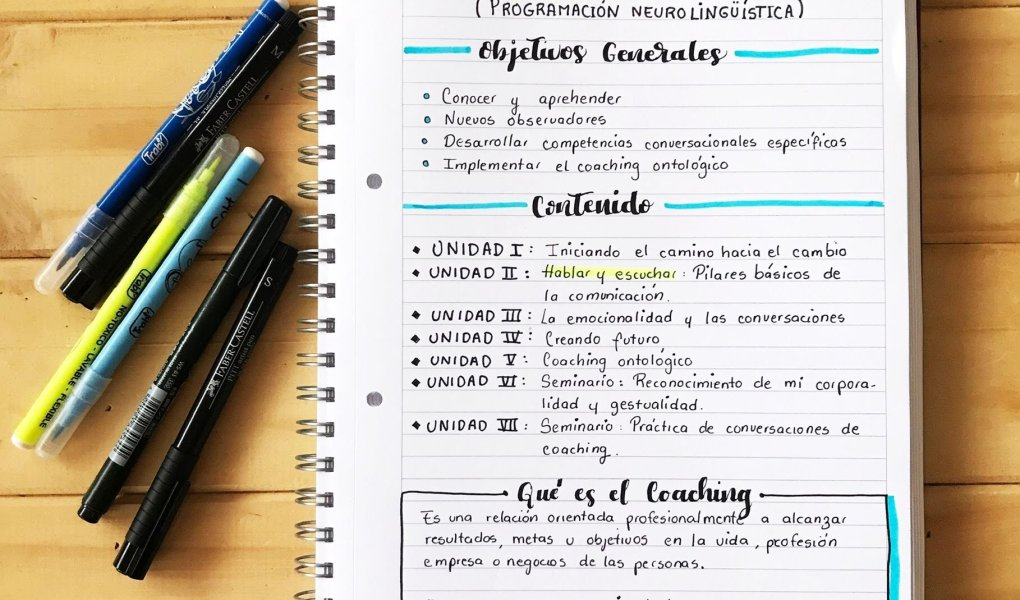 (PROGRAMACIÓN NEUROLINGÜÍSTICA)
Objetivos Generales
Conocer y aprehender
Nuevos observadores
Desarrollar competencias conversacionales específicas
Implementar el coaching ontológico
Contenido
UNIDAD I: Iniciando el camino hacia el cambio
UNIDAD II: Hablar y escuchar: Pilares básicos de
la comunicación.
UNIDAD III: La emocionalidad y las conversaciones
UNIDAD IV: Creando futuro
UNIDAD V: Coaching ontológico
UNIDAD VI: Seminario: Reconocimiento de mi corpora-
lidad y gestualidad.
UNIDAD VII: Seminario: Práctica de conversaciones de
coaching.
Qué es el Coaching
Es una relación orientada profesionalmente a alcanzar
resultados, metas u objetivos en la vida, profesión
empresa o negocios de las personas.
Trabi
FABER CASTELL
M
Trabi
NO TOXICO - LAVABLE - FLEXIBLE
Trabi
FABER CASTELL
S